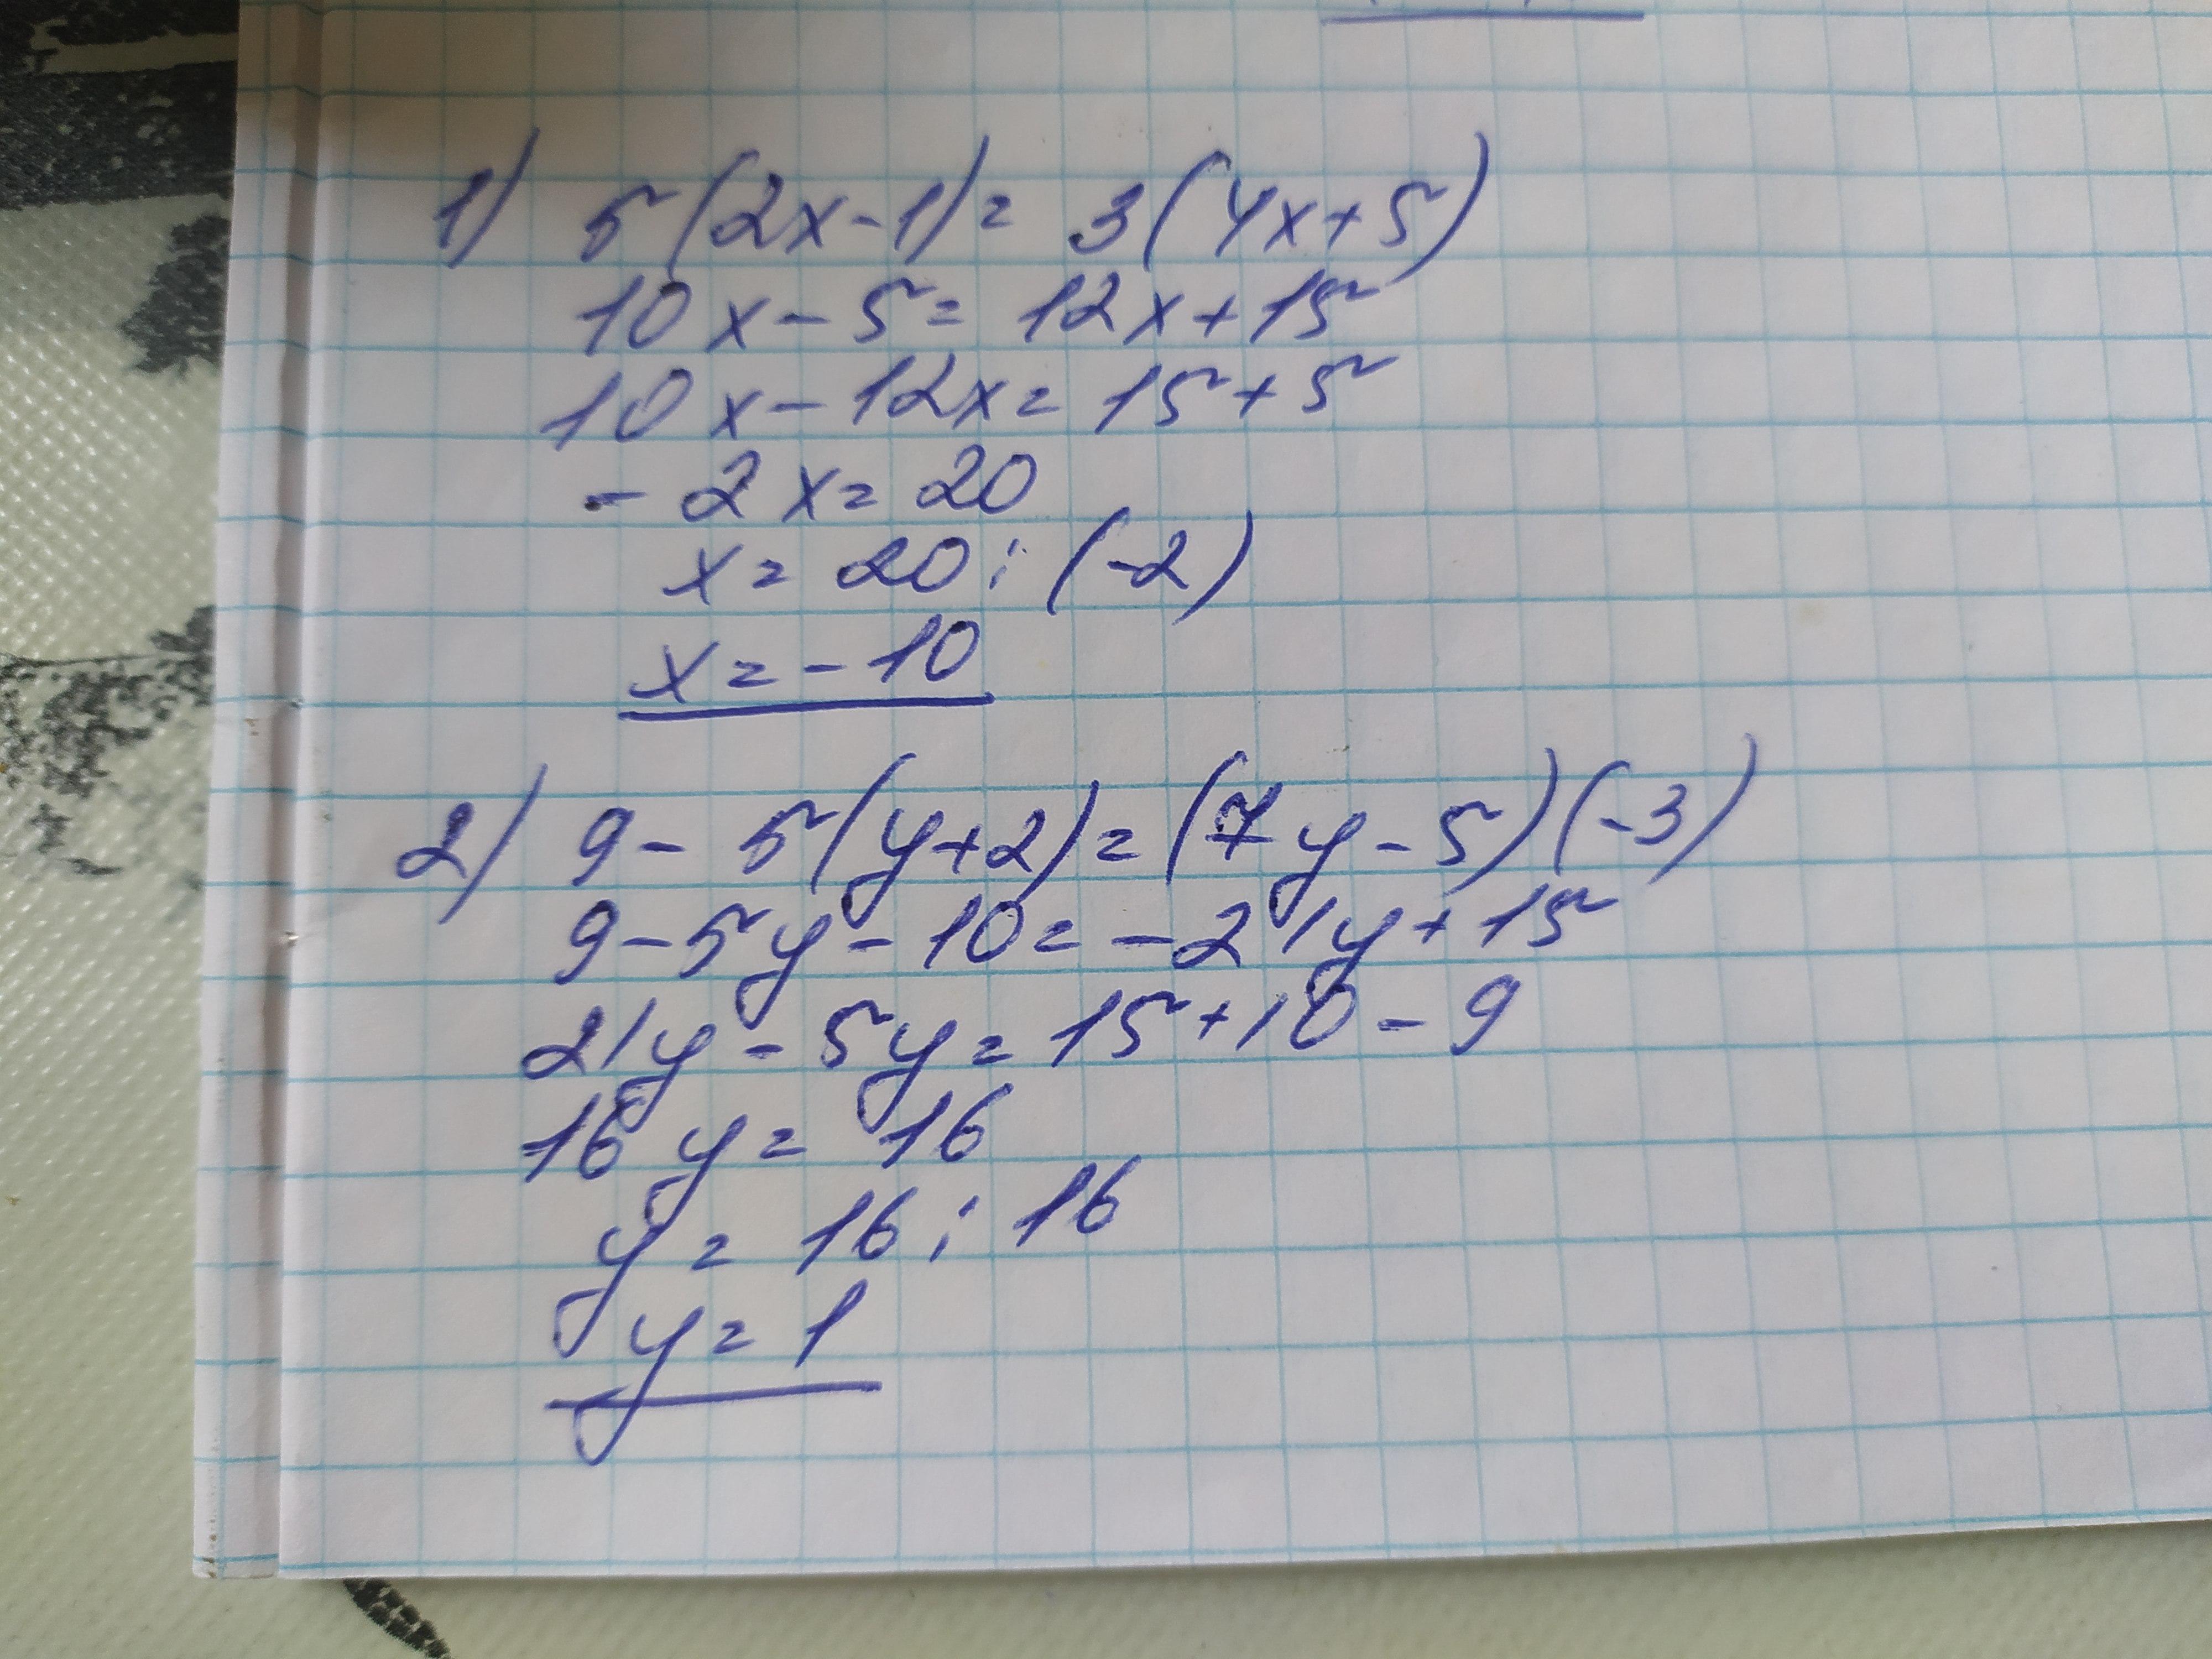 1) 5(2x-1)= 3(4x+5)
10x-5= 12x+15
10x-12x=15+5
-2x=20
x=20:(-2)
x=-10
2) 9-5(y+2)=(7y-5)(-3)
9-5y-10=-21y+15
21y-5y=15+10-9
16y=16
y=16:16
y=1